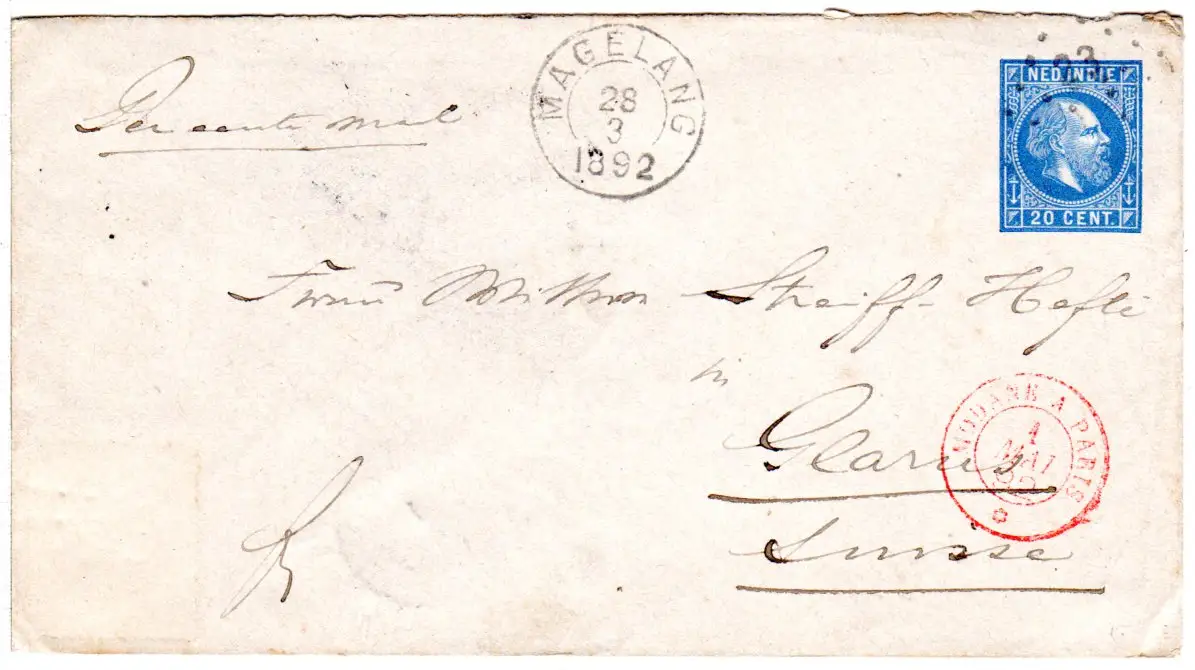 Per eerste mail
MAGELANG
28
3
1892
23
NED. INDIE
20 CENT.
Streiff-Hefti
in
Glarus
Suisse
MODANE A PARIS
1
MAI
92